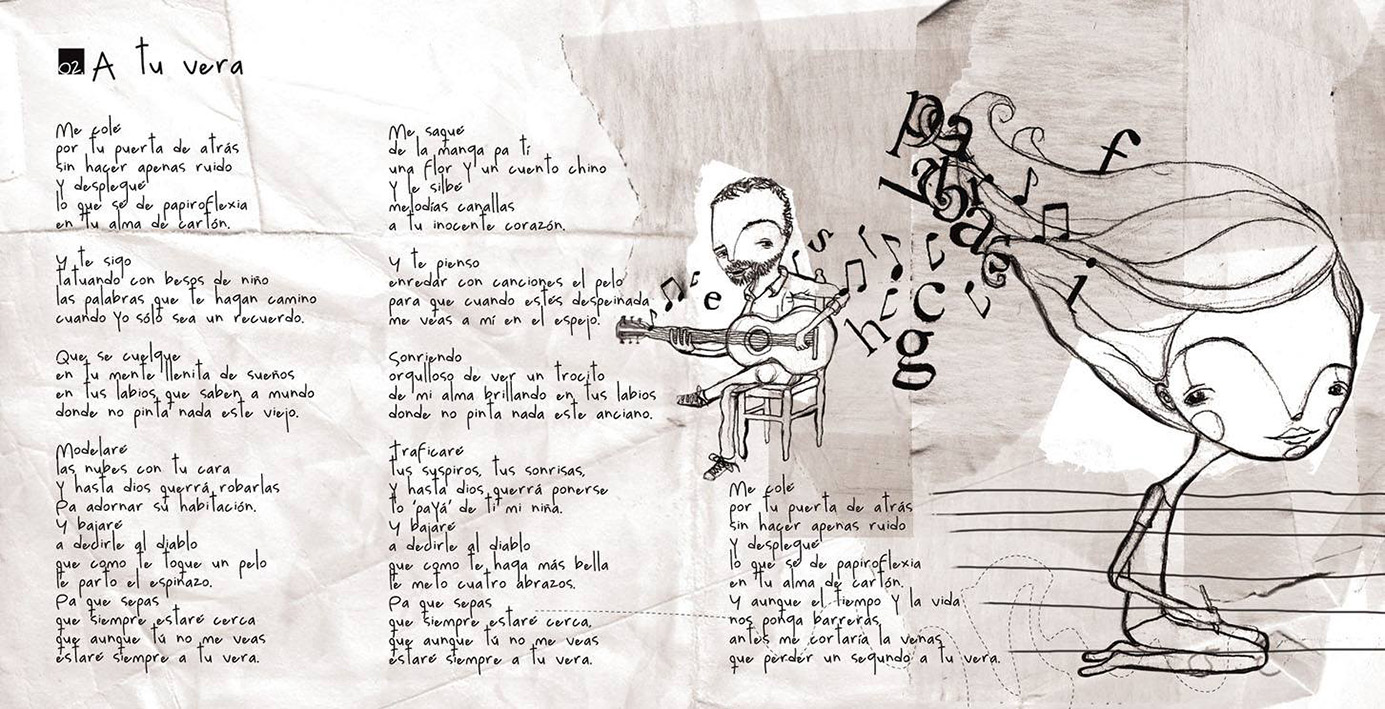 02 A tu vera
Me colé
por tu puerta de atrás
sin hacer apenas ruido
y desplegué
lo que sé de papiroflexia
en tu alma de cartón.
y te sigo
tatuando con besos de niño
las palabras que te hagan camino
cuando yo sólo sea un recuerdo.
Que se cuelgue
en tu mente llenita de sueños
en tus labios que saben a mundo
donde no pinta nada este viejo.
Modelaré
las nubes con tu cara
y hasta dios querrá robarlas
Pa adornar su habitación.
y bajaré
a decirle al diablo
que como te toque un pelo
le parto el espinazo.
Pa que sepas
que siempre estaré cerca
que aunque tú no me veas
estaré siempre a tu vera.
Me saqué
de la manga pa ti
una flor y un cuento chino
y le silbé
melodías canallas
a tu inocente corazón.
y te pienso
enredar con canciones el pelo
para que cuando estés despeinada
me veas a mí en el espejo.
Sonriendo
orgulloso de ver un trocito
de mi alma brillando en tus labios
donde no pinta nada este anciano.
Traficaré
tus suspiros, tus sonrisas,
y hasta dios querrá ponerse
to 'payá' de ti mi niña.
y bajaré
a decirle al diablo
que como te haga más bella
le meto cuatro abrazos.
Pa que sepas
que siempre estaré cerca,
que aunque tú no me veas
estaré siempre a tu vera.
Me colé
por tu puerta de atrás
sin hacer apenas ruido
y desplegué
lo que sé de papiroflexia
en tu alma de cartón.
y aunque el tiempo y la vida
nos ponga barreras,
antes me cortaría la venas
que perder un segundo a tu vera.
palabras
f
i
s
s
e
i
c
h
g